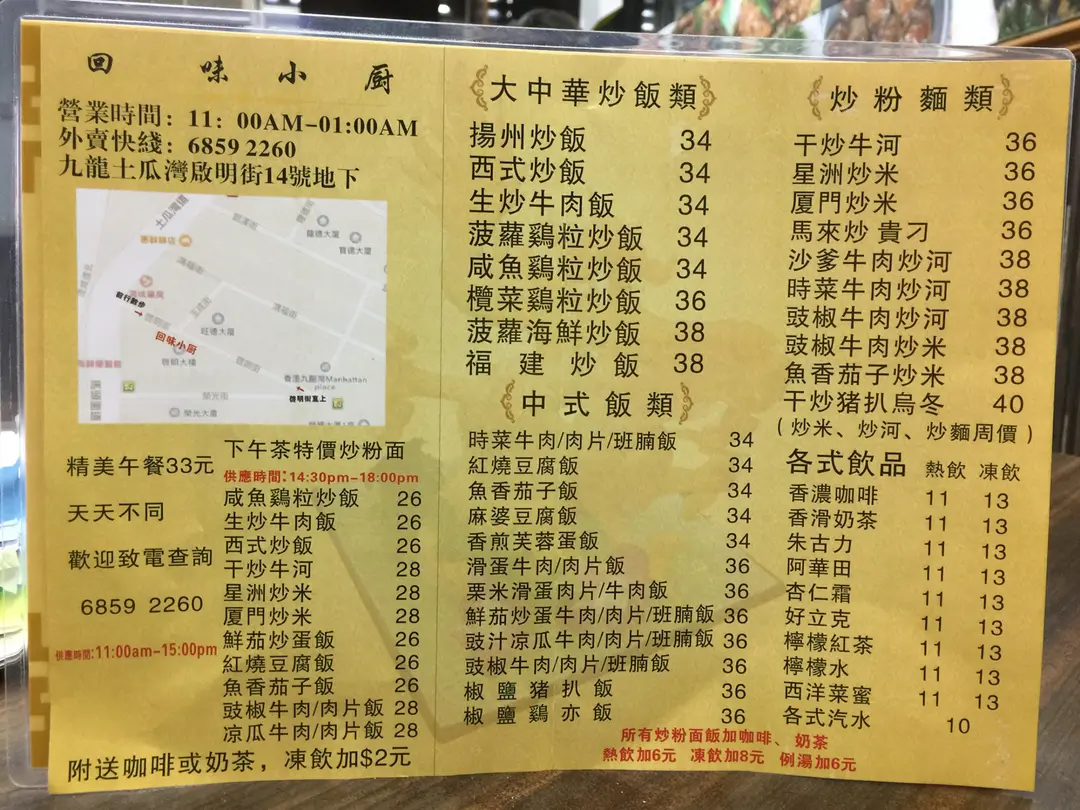 回味小厨
營業時間：11：00AM-01:00AM
外賣快綫：6859 2260
九龍土瓜灣啟明街14號地下
土瓜灣道
龍德大廈
寶德大廈
鴻福街
旺德大廈
前行數步
回味小厨
啓明大樓
香港九龍灣Manhattan place
啓明街直上
榮光街
榮光大廈
馬頭圍道
精美午餐33元
天天不同
歡迎致電查詢
6859 2260
供應時間:11:00am-15:00pm
下午茶特價炒粉面
供應時間:14:30pm-18:00pm
咸魚鷄粒炒飯 26
生炒牛肉飯 26
西式炒飯 26
干炒牛河 28
星洲炒米 28
厦門炒米 28
鮮茄炒蛋飯 26
紅燒豆腐飯 26
魚香茄子飯 26
豉椒牛肉/肉片飯 28
凉瓜牛肉/肉片飯 28
附送咖啡或奶茶，凍飲加$2元
大中華炒飯類
揚州炒飯 34
西式炒飯 34
生炒牛肉飯 34
菠蘿鷄粒炒飯 34
咸魚鷄粒炒飯 34
欖菜鷄粒炒飯 36
菠蘿海鮮炒飯 38
福建炒飯 38
中式飯類
時菜牛肉/肉片/班腩飯 34
紅燒豆腐飯 34
魚香茄子飯 34
麻婆豆腐飯 34
香煎芙蓉蛋飯 34
滑蛋牛肉/肉片飯 36
栗米滑蛋肉片/牛肉飯 36
鮮茄炒蛋牛肉/肉片/班腩飯 36
豉汁凉瓜牛肉/肉片/班腩飯 36
豉椒牛肉/肉片/班腩飯 36
椒鹽猪扒飯 36
椒鹽鷄亦飯 36
所有炒粉面飯加咖啡、奶茶
熱飲加6元 凍飲加8元 例湯加6元
炒粉麵類
干炒牛河 36
星洲炒米 36
厦門炒米 36
馬來炒貴刁 36
沙爹牛肉炒河 38
時菜牛肉炒河 38
豉椒牛肉炒河 38
豉椒牛肉炒米 38
魚香茄子炒米 38
干炒猪扒烏冬 40
(炒米、炒河、炒麵周價)
各式飲品 熱飲 凍飲
香濃咖啡 11 13
香滑奶茶 11 13
朱古力 11 13
阿華田 11 13
杏仁霜 11 13
好立克 11 13
檸檬紅茶 11 13
檸檬水 11 13
西洋菜蜜 11 13
各式汽水 10